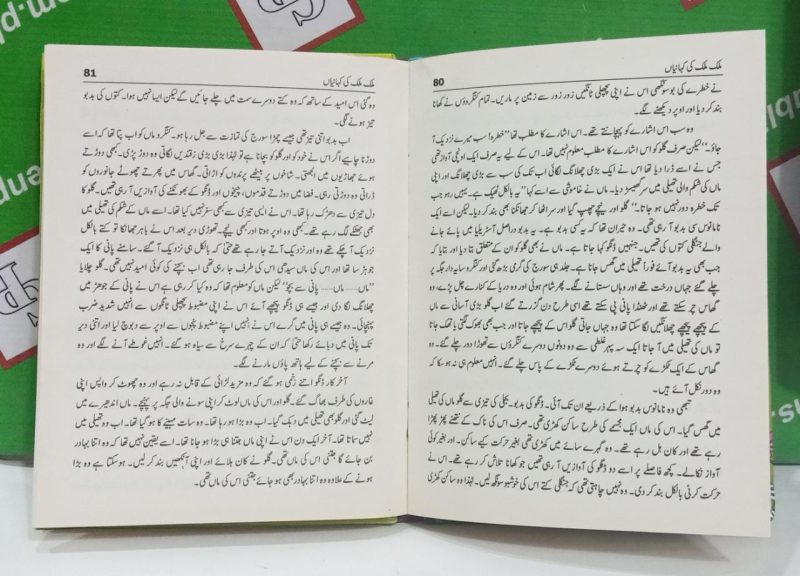 ملک ملک کی کہانیاں
80
نے خطرے کی بو سونگھی اس نے اپنی پچھلی ٹانگیں زور زور سے زمین پر ماریں۔ تمام کنگروؤں نے کھانا
بند کر دیا اور اوپر دیکھنے لگے۔
وہ سب اس اشارے کو پہچانتے تھے۔ اس اشارے کا مطلب تھا ”خطرہ! سب میرے نزدیک آ
جاؤ۔“ لیکن صرف گلو کو اس اشارے کا مطلب معلوم نہیں تھا۔ اس کے لیے یہ صرف ایک اونچی آواز تھی
جس نے اسے ڈرا دیا تھا اس نے ایک بڑی چھلانگ لگائی اب تک کی سب سے بڑی چھلانگ اور اپنی
ماں کی شکم والی تھیلی میں سر گھسیڑ دیا۔ ماں نے خاموشی سے اسے کہا ”یہ بالکل ٹھیک ہے۔ یہیں رہو جب
تک خطرہ دور نہیں ہو جاتا۔“ گلو اور نیچے چھپ گیا اور سر اٹھا کر جھانکنا بھی بند کر دیا۔ لیکن اسے ایک
نامانوس سی بو آ رہی تھی۔ وہ حیران تھا کہ یہ کسی بو ہے۔ یہ بدبو دراصل آسٹریلیا میں پائے جانے
والے جنگلی کتوں کی تھیں۔ جنہیں ڈنگو کہا جاتا ہے۔ ماں نے بھی گلو کو ان کے متعلق بتا دیا اور بتایا کہ
جب بھی یہ بدبو آئے فوراً تھیلی میں گھس جانا ہے۔ جلد ہی سورج کی گرمی بڑھ گئی اور کنگرو سایہ دار جگہ پر
چلے گئے جہاں درخت تھے اور وہاں سستانے لگے۔ پھر شام ہوئی اور وہ دریا کے کنارے چل پڑے۔ وہ
گھاس چر سکتے تھے اور ٹھنڈا پانی پی سکتے تھے اسی طرح دن گزرتے گئے اب گلو بڑی آسانی سے ماں
کے پیچھے پیچھے چھلانگیں لگا سکتا تھا وہ جہاں جاتی گلو اس کے پیچھے جاتا اور جب بھی بھوک لگتی یا تھک جاتا
تو ماں کی تھیلی میں آ جاتا ایک سہ پہر غلطی سے وہ دونوں دوسرے کنگروؤں سے تھوڑا دور چلے گئے۔ وہ
گھاس کے ایک ٹکڑے کو چرتے ہوئے دوسرے ٹکڑے کے پاس چلے گئے۔ انہیں معلوم ہی نہ ہو سکا کہ
وہ دور نکل آئے ہیں۔
تبھی وہ نامانوس بدبو ہوا کے ذریعے ان تک آئی۔ ڈنگو کی بدبو۔ بجلی کی تیزی سے گلو ماں کی تھیلی
میں گھس گیا۔ اس کی ماں ایک مجسمے کی طرح ساکن کھڑی تھی۔ صرف اس کی ناک کے نتھنے پھڑ پھڑا
رہے تھے اور کان ہل رہے تھے۔ وہ گہرے سائے میں کھڑی تھی بغیر حرکت کیے ساکن۔ اور بغیر کوئی
آواز نکالے۔ کچھ فاصلے پر اسے دو ڈنگو کی آوازیں آ رہی تھیں جو کھانا تلاش کر رہے تھے۔ اس نے
حرکت کرنی بالکل بند کر دی۔ وہ نہیں چاہتی تھی کہ جنگلی کتے اس کی خوشبو سونگھ لیں۔ لہٰذا وہ ساکن کھڑی
ملک ملک کی کہانیاں
81
وہ گئی اس امید کے ساتھ کہ وہ کتے دوسرے سمت میں چلے جائیں گے لیکن ایسا نہیں ہوا۔ کتوں کی بدبو
تیز ہونے لگی۔
اب بدبو اتنی تیز تھی جیسے چھڑا سورج کی تمازت سے جل رہا ہو۔ کنگرو ماں کو اب پتا تھا کہ اسے
دوڑنا چاہیے اگر اس نے خود کو اور گلو کو بچانا ہے تو لہٰذا بڑی بڑی زقندیں لگاتی وہ دوڑ پڑی۔ کبھی دوڑتے
ہوئے جھاڑیوں میں الجھتی۔ شاخوں پر بیٹھے پرندوں کو اڑاتی۔ گھاس میں پھرتے چھوٹے جانوروں کو
ڈراتی وہ دوڑتی رہی۔ فضا میں دوڑتے قدموں، چیخوں اور ڈنگو کے بھونکنے کی آوازیں آ رہی تھیں۔ گلو کا
دل تیزی سے دھڑک رہا تھا۔ اس نے ایسی تیزی سے کبھی سفر نہیں کیا تھا۔ اسے ماں کے شکم کی تھیلی میں
بھی جھٹکے لگ رہے تھے۔ کبھی وہ اوپر ہوتا اور کبھی نیچے۔ تھوڑی دیر بعد اس نے باہر جھانکا تو کتے بالکل
نزدیک آ چکے تھے وہ اور نزدیک آتے جا رہے تھے حتیٰ کہ بالکل ہی نزدیک آ گئے۔ سامنے پانی کا ایک
جوہڑ سا تھا اور اس کی ماں سیدھی اس کی طرف جا رہی تھی اب بچنے کی کوئی امید نہیں تھی۔ گلو چلایا
”ماں ..... ماں ..... پانی سے بچو“ لیکن ماں کو معلوم تھا کہ وہ کیا کر رہی ہے۔ اس نے پانی کے جوہڑ میں
چھلانگ لگا دی اور ڈنگو پیچھے آئے اس نے اپنی مضبوط پچھلی ٹانگوں سے انہیں شدید ضرب
پہنچائی۔ وہ جیسے ہی پانی میں گرے اس نے انہیں اپنے مضبوط پنجوں سے دبوچ لیا اور اتنی دیر
تک پانی میں دبائے رکھا حتیٰ کہ ان کے چہرے سرخ سے سیاہ ہو گئے۔ انہیں غوطے آنے لگے اور وہ
مرنے سے بچنے کے لیے ہاتھ پاؤں مارنے لگے۔
آخر کار ڈنگو اتنے زخمی ہو گئے کہ وہ مزید لڑائی کے قابل نہ رہے اور وہ چھوٹ کر واپس اپنی
غاروں کی طرف بھاگ گئے۔ گلو اور اس کی ماں لوٹ کر اپنی سونے والی جگہ پر پہنچے۔ ماں اندھیرے میں
لیٹ گئی اور گلو بھی تھیلی میں دبک گیا۔ اب وہ بڑا ہو رہا تھا۔ وہ سات مہینے کا ہو گیا تھا۔ اب وہ تھیلی میں
نہیں سماتا تھا۔ آخر ایک دن اس نے اپنی ماں جتنا ہی بڑا ہو جانا تھا۔ اسے یقین نہیں تھا کہ وہ اتنا بہادر
بن جائے گا جتنی اس کی ماں تھی۔ گلو نے کان ہلائے اور اپنی آنکھیں بند کر لیں۔ ہو سکتا ہے وہ بڑا
ہونے کے علاوہ وہ اتنا بہادر بھی ہو جائے جتنی اس کی ماں تھی۔